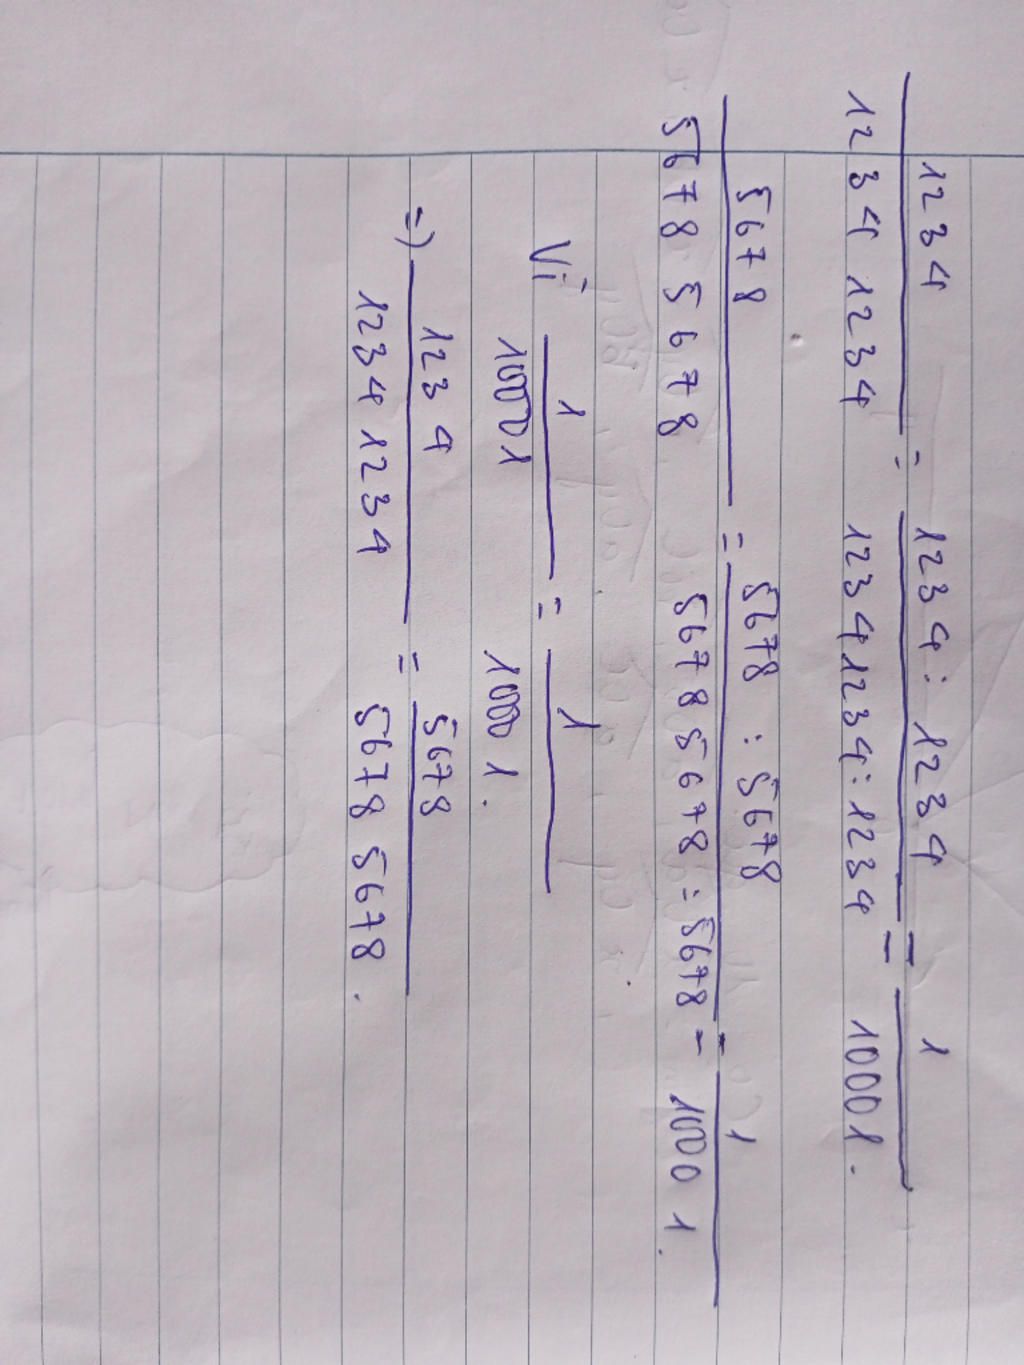 1234 = 1234 : 1234 = 1
12341234 12341234 : 1234 10001.
5678 = 5678 : 5678 = 1
56785678 56785678 : 5678 10001.
Vì 1 = 1
10001 10001.
=) 1234 = 5678
12341234 56785678.